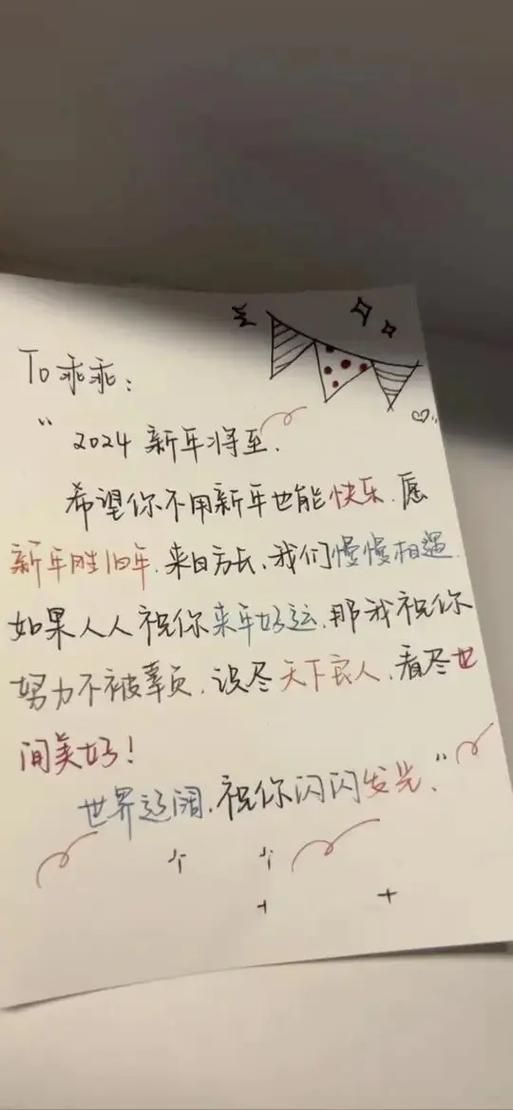 To 乖乖：
“ 2024 新年将至.
希望你不用新年也能快乐.愿
新年胜旧年.来日方长、我们慢慢相遇.
如果人人祝你来年好运.那我祝你
努力不被辜负.识尽天下良人.看尽世
间美好！
世界辽阔.祝你闪闪发光.”